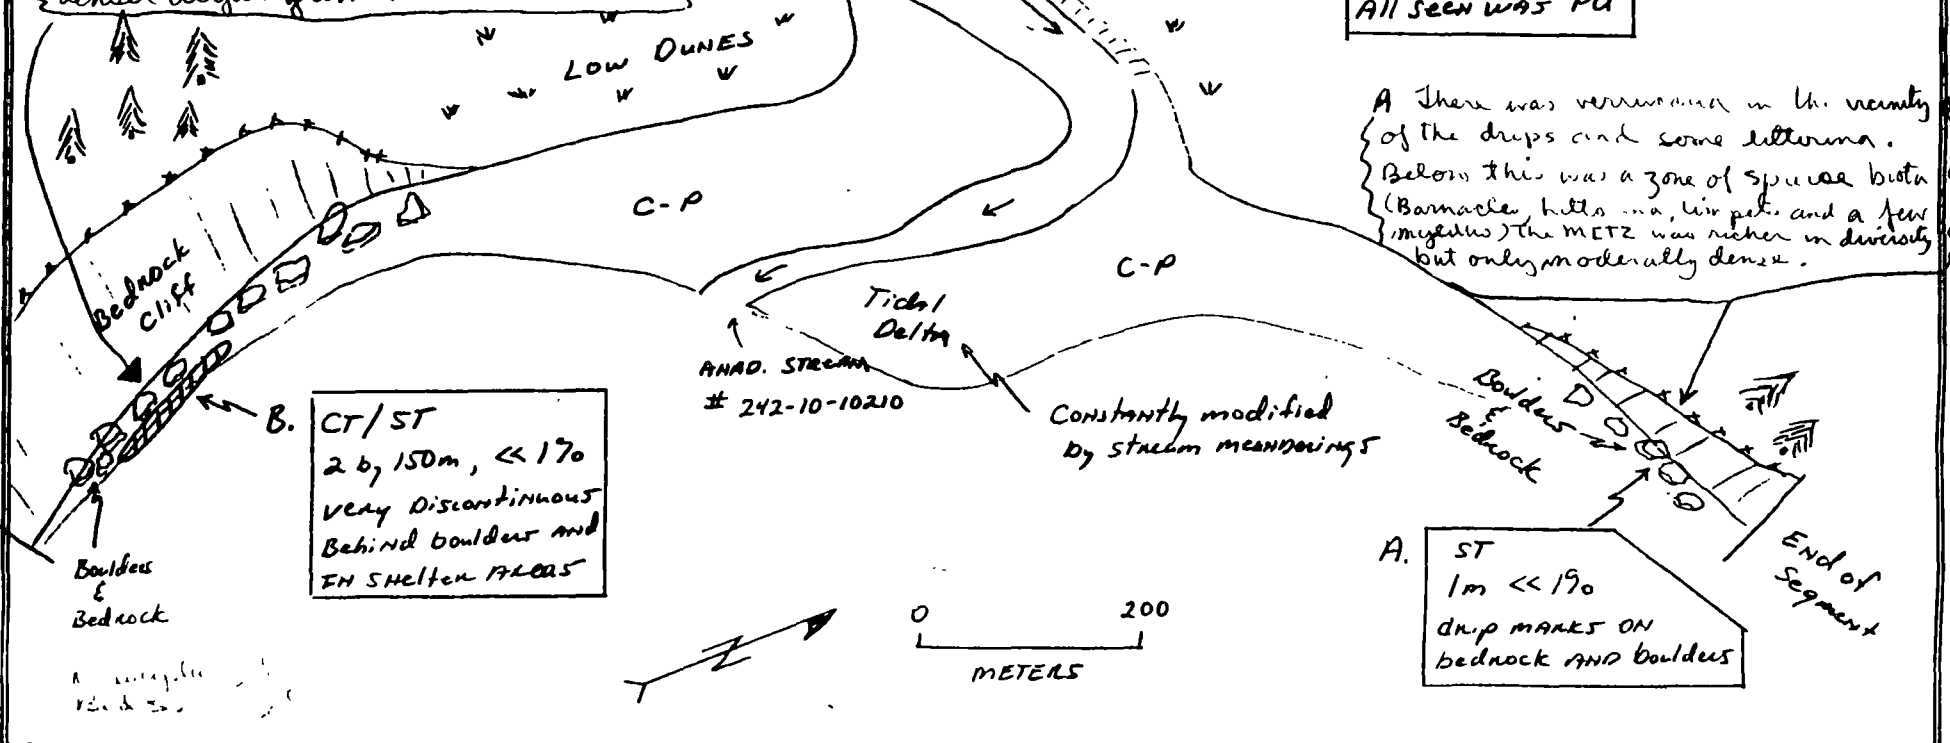 All seen was PU
Low Dunes
A There was verrucaria in the vicinity
of the drips and some littorina.
Below this was a zone of sparse biota
(Barnacles, limpets and a few
mytilus) The METZ was richer in diversity
but only moderately dense.
C-P
C-P
Bedrock
Cliff
Tidal
Delta
ANAD. STREAM
# 242-10-10210
Constantly modified
by stream meanderings
Boulders
&
Bedrock
B.
CT/ST
2 by 150m, << 1%
very Discontinuous
Behind boulders AND
IN SHelter AReas
A.
ST
1m << 1%
drip MARKS ON
bedrock AND boulders
End of
Segment
Boulders
&
Bedrock
N
0 200
METERS